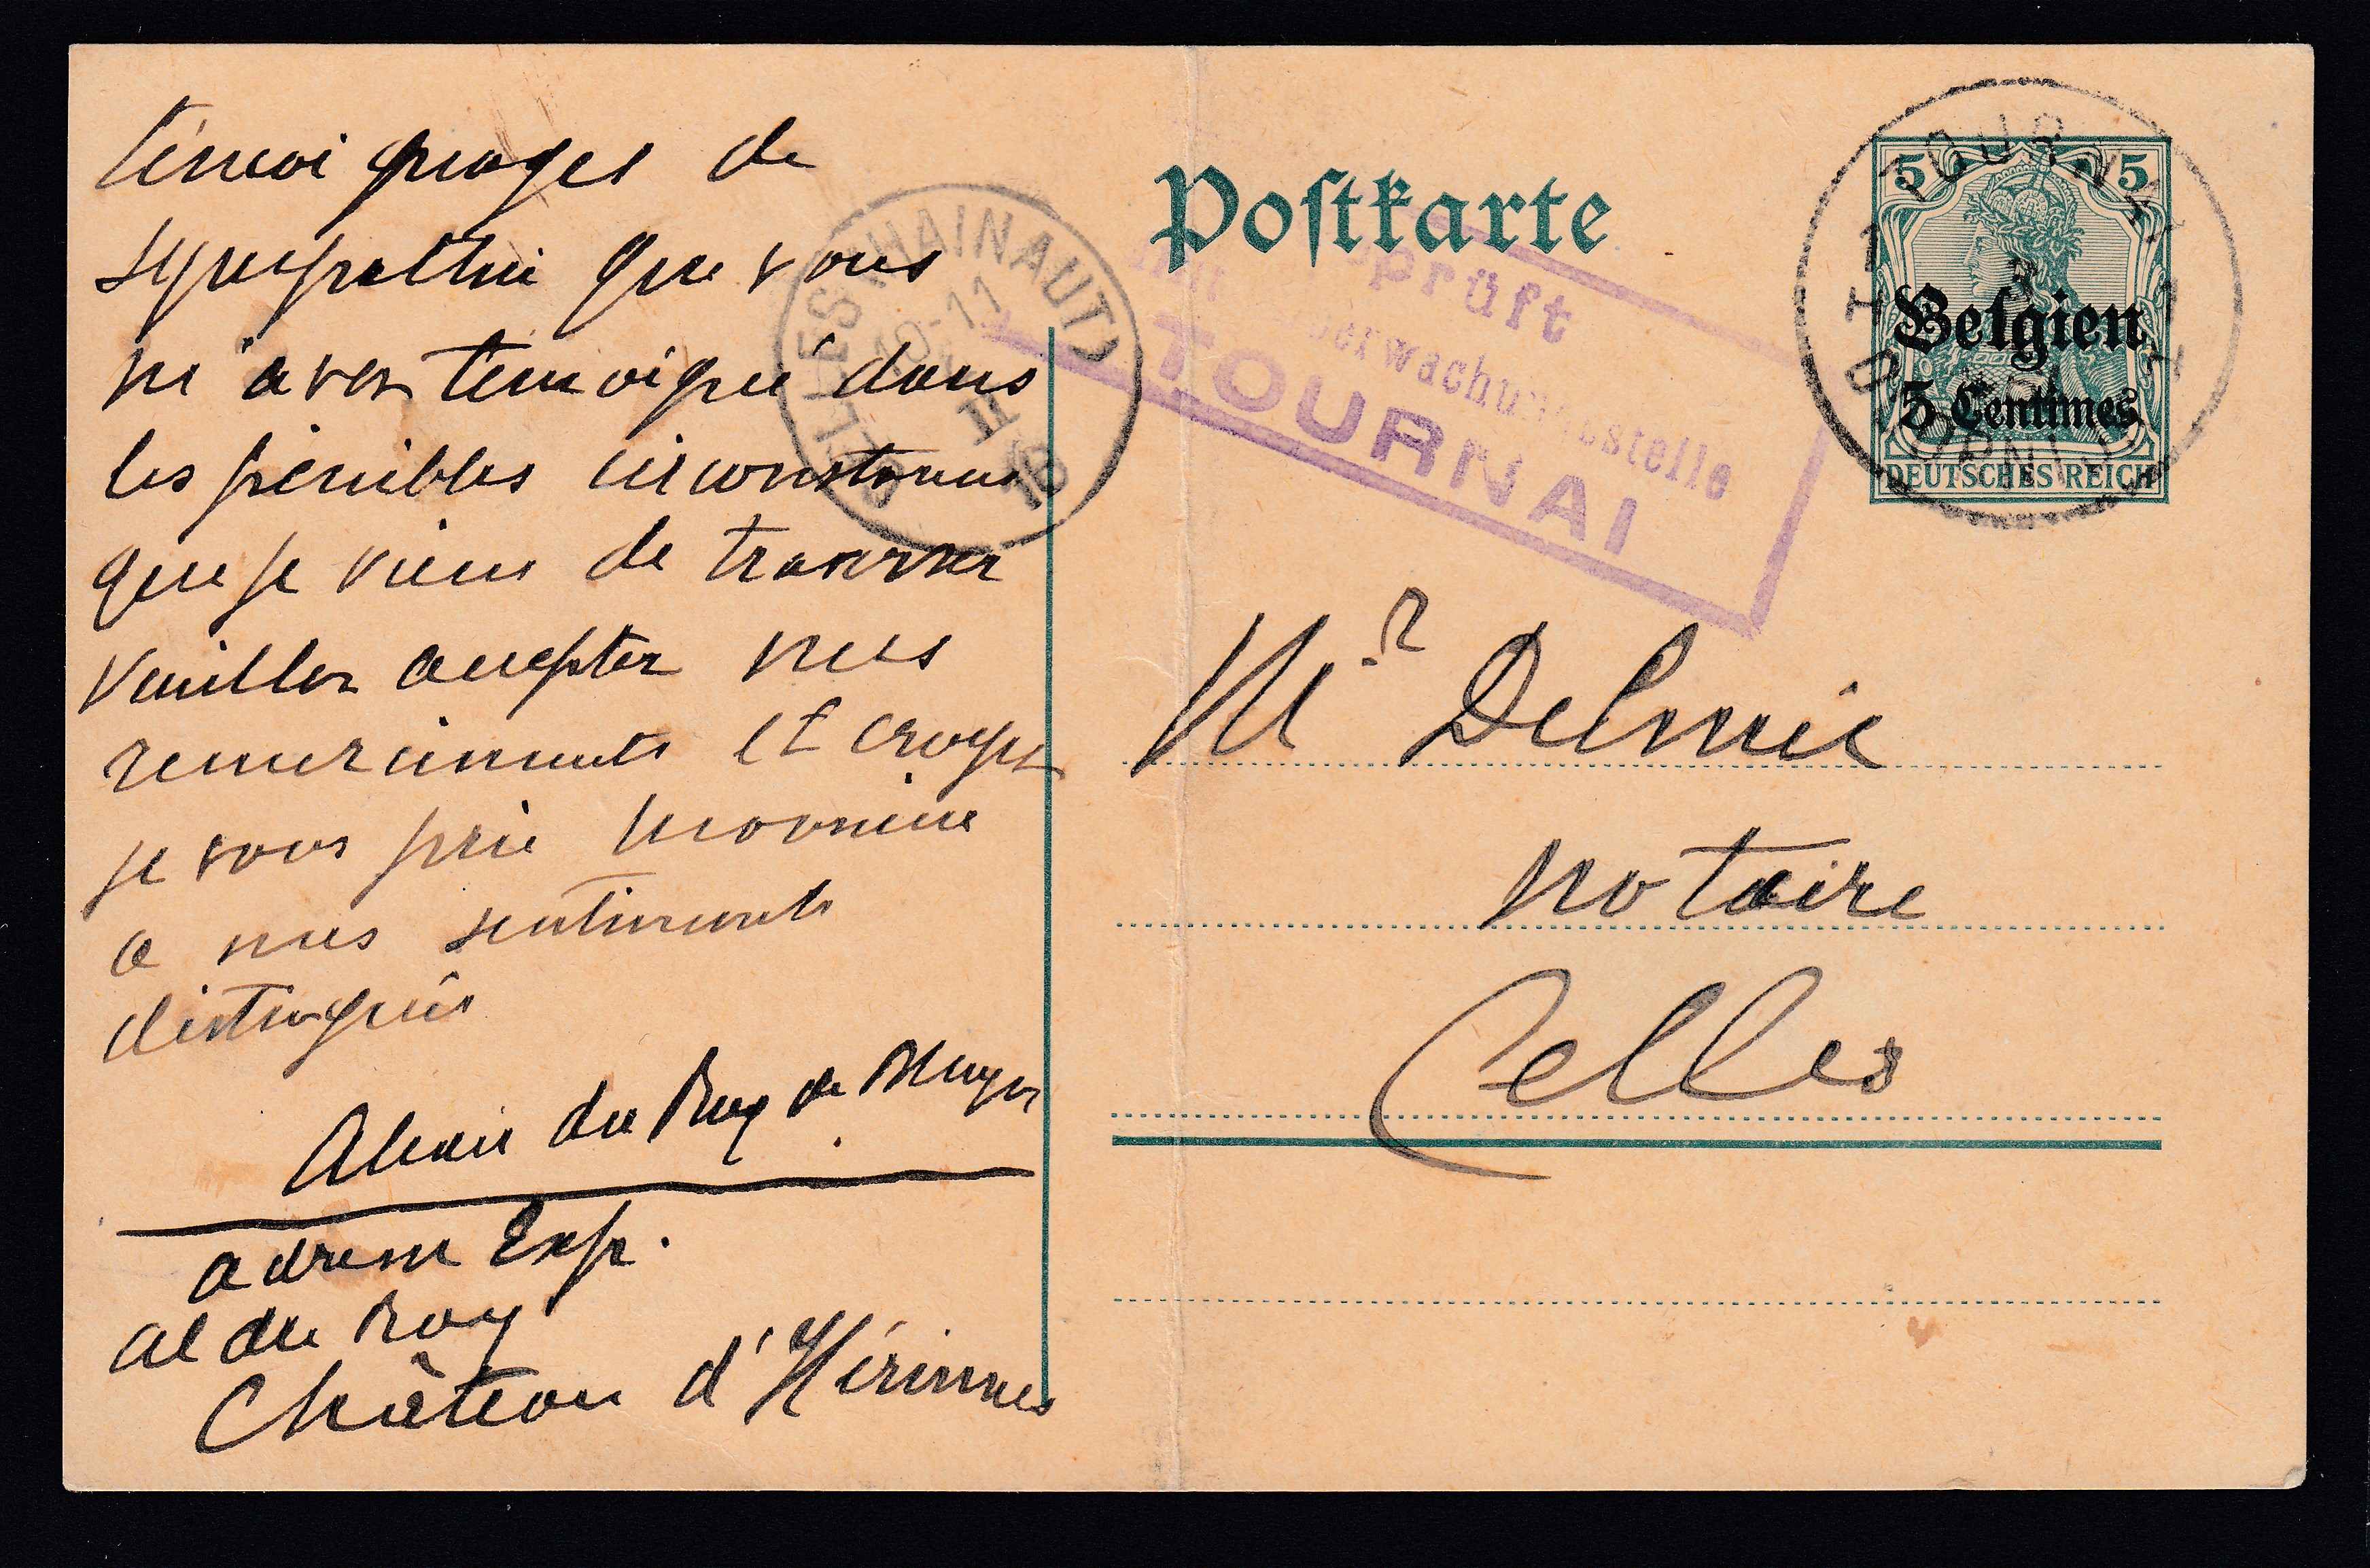 témoignages de
sympathie que vous
m'avez témoigné dans
les pénibles circonstances
que je viens de traverser
veuillez accepter mes
remerciements et croyez
je vous prie monsieur
a mes sentiments
distingués
du Roy de
adresse Exp.
al du Roy
Château d'Hérinnes
CELLES (HAINAUT)
10-11
II
18
Postkarte
geprüft
Überwachungsstelle
TOURNAI
TOURNAI
DOORNIK
5 5
Belgien
5 Centimes
DEUTSCHES REICH
Mr Delmée
notaire
Celles